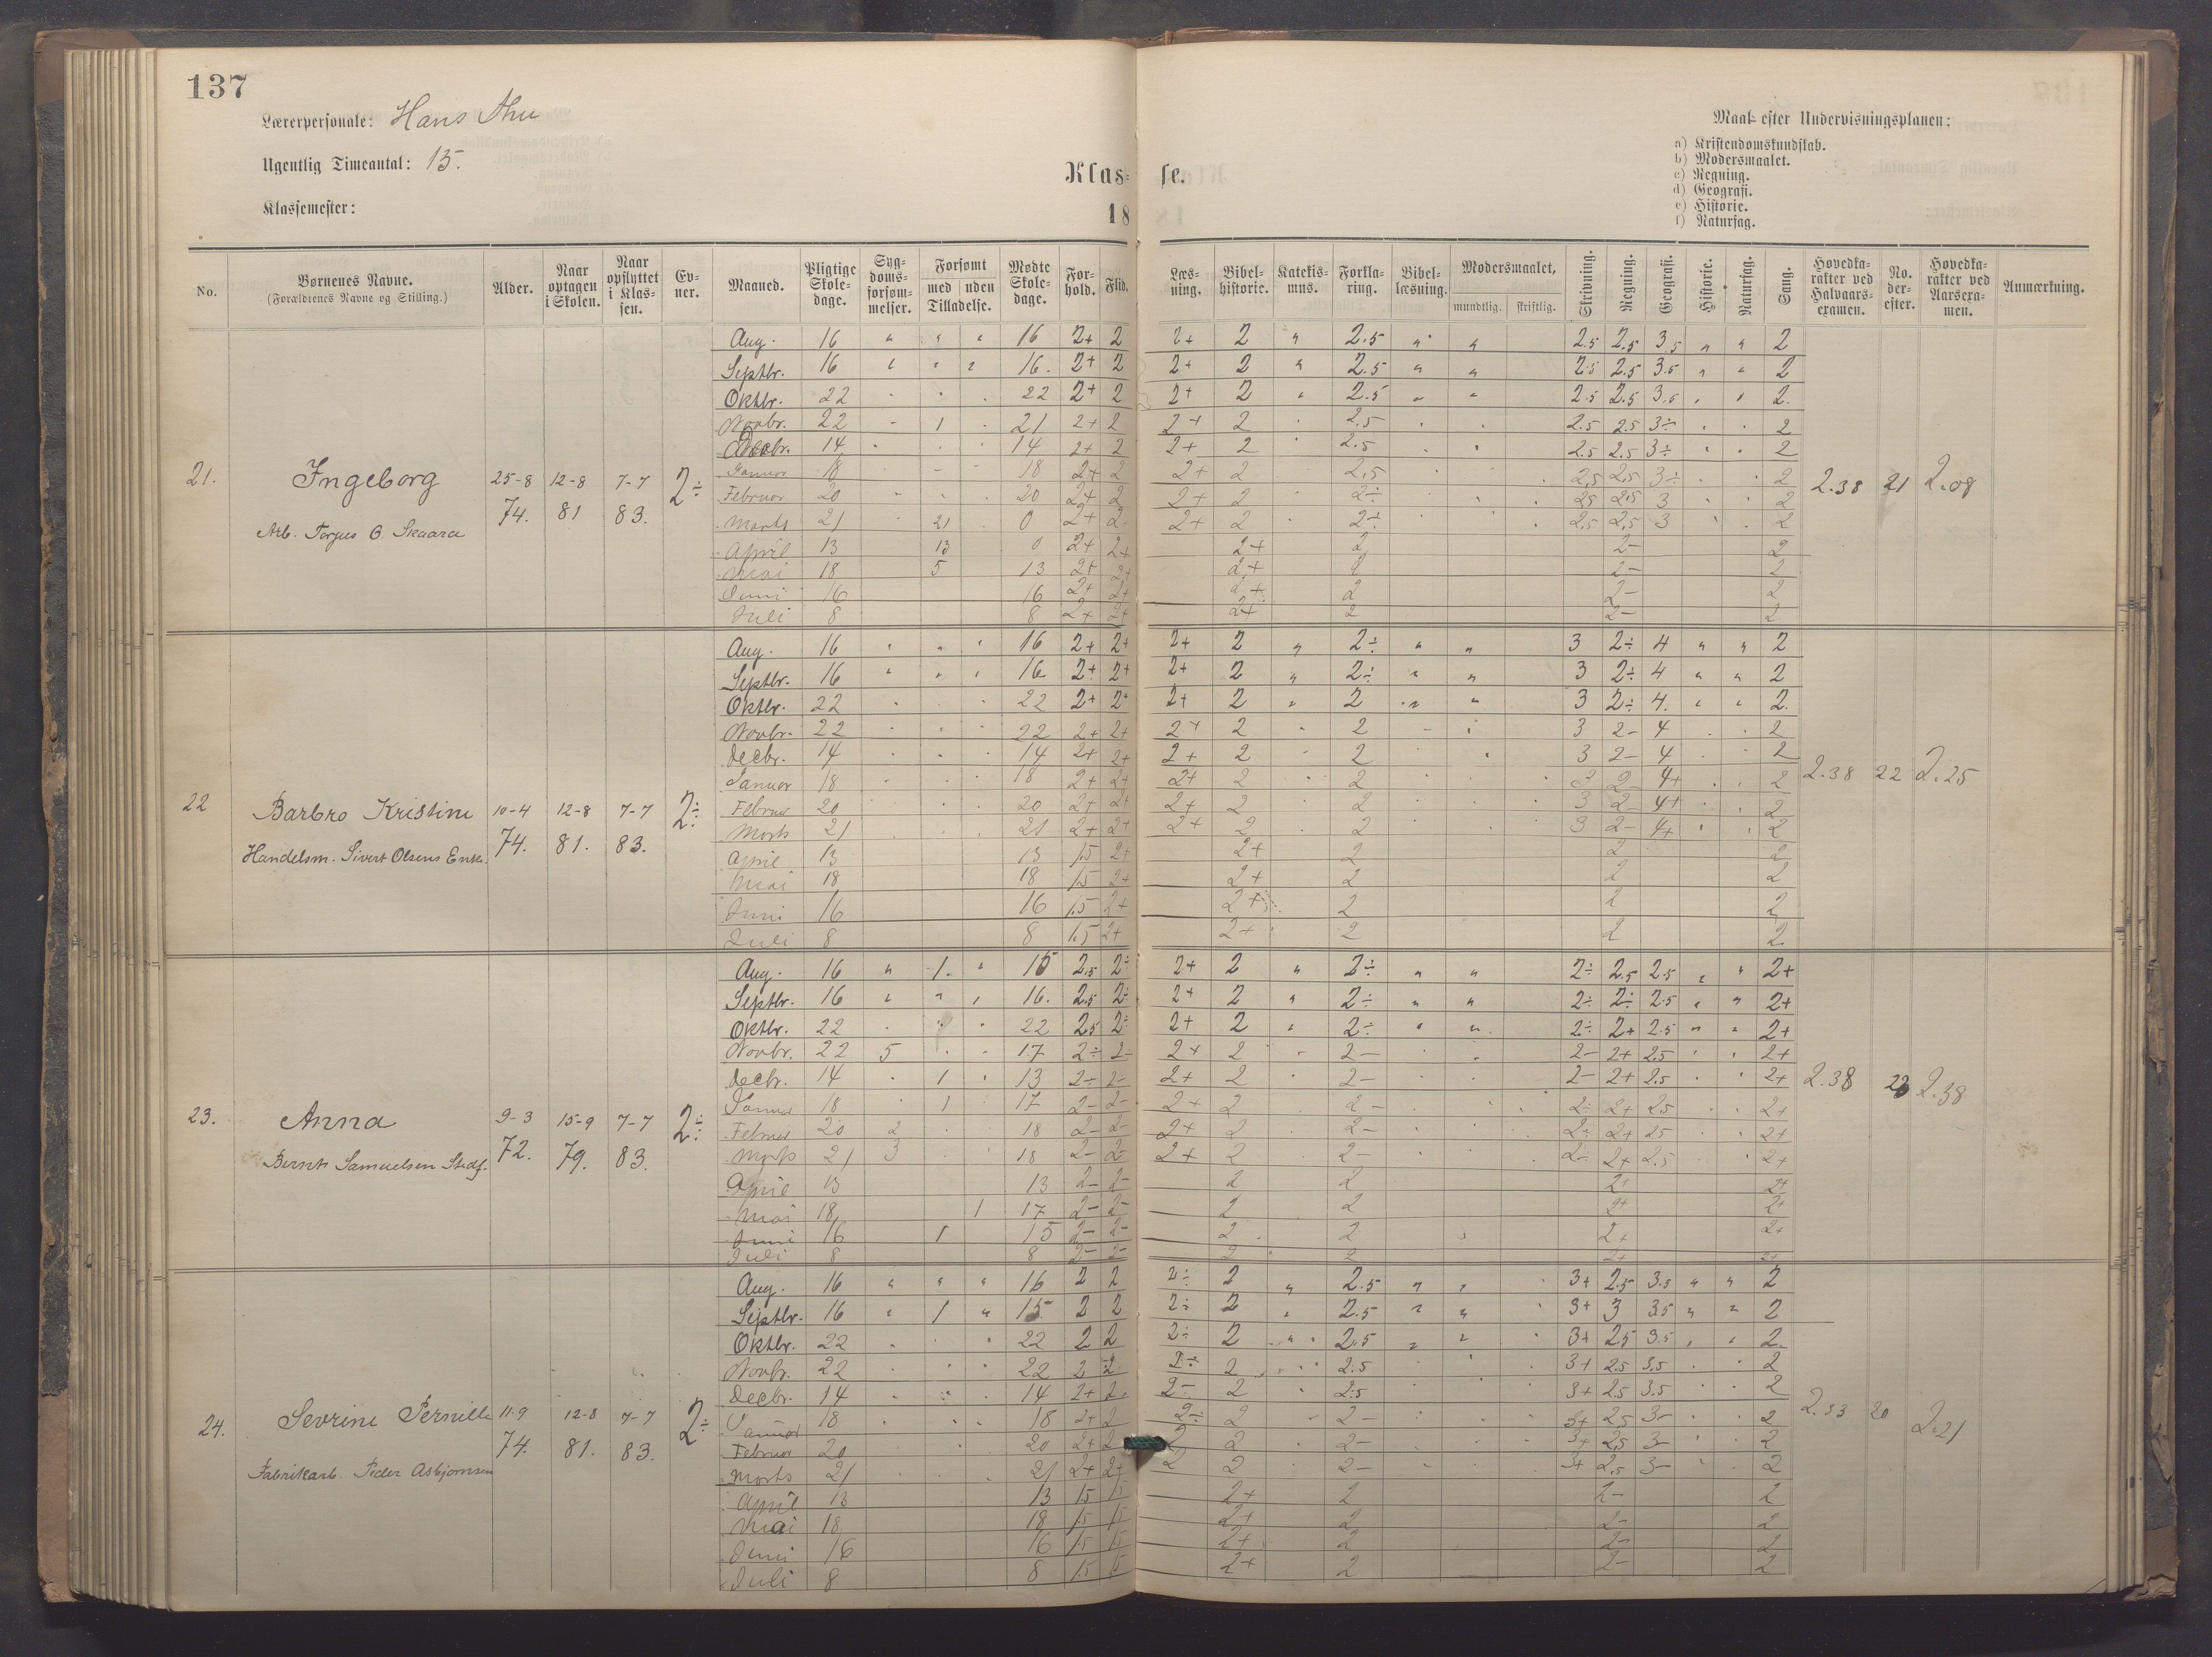 137
Lærerpersonale: Hans Thu
Ugentlig Timeantal: 15.
Klassemester:
Klasse.
18
Maal efter Undervisningsplanen:
a) Kristendomskundskab.
b) Modersmaalet.
c) Regning.
d) Geografi.
e) Historie.
f) Naturfag.
No. | Børnenes Navne. (Forældrenes Navne og Stilling.) | Alder. | Naar optagen i Skolen. | Naar opflyttet i Klassen. | Evner. | Maaned. | Pligtige Skoledage. | Sygdomsforsømmelser. | Forsømt med Tilladelse. | uden Tilladelse. | Mødte Skoledage. | Forhold. | Flid. | Læsning. | Bibelhistorie. | Katekismus. | Forklaring. | Bibellæsning. | Modersmaalet, mundtlig. | skriftlig. | Skrivning. | Regning. | Geografi. | Historie. | Naturfag. | Sang. | Hovedkarakter ved Halvaarsexamen. | No. derefter. | Hovedkarakter ved Aarsexamen. | Anmærkning.
21. Ingeborg 25-8 74. 12-8 81 7-7 83. 2÷ 2.38 21 2.08
Arb. Torjus O. Skaara
Aug. 16 " " " 16 2+ 2 2+ 2 " 2.5 " " 2.5 2.5 3.5 " " 2
Septbr. 16 " " " 16. 2+ 2 2+ 2 " 2.5 " " 2.5 2.5 3.5 " " 2
Oktbr. 22 22 2+ 2 2+ 2 " 2.5 " " 2.5 2.5 3.5 2.
Novbr. 22 1 21 2+ 2 2+ 2 2.5 2.5 2.5 3÷ 2
Decbr. 14 14 2+ 2 2+ 2 2.5 2.5 2.5 3÷ 2
Januar 18 18 2+ 2 2+ 2 2.5 2.5 2.5 3÷ 2
Februar 20 20 2+ 2 2+ 2 2÷ 2.5 2.5 3 2
Marts 21 21 0 2+ 2 2+ 2 2÷ 2.5 2.5 3 2
April 13 13 0 2+ 2+ 2+ 2 2- 2
Mai 18 5 13 2+ 2+ 2+ 2 2- 2
Juni 16 16 2+ 2+ 2+ 2 2- 2
Juli 8 8 2+ 2+ 2+ 2 2- 2
22 Barbro Kristine 10-4 74. 12-8 81. 7-7 83. 2÷ 2.38 22 2.25
Handelsm. Sivert Olsens Enke.
Aug. 16 " " " 16 2+ 2+ 2+ 2 " 2÷ " " 3 2÷ 4 " " 2
Septbr. 16 " " " 16 2+ 2+ 2+ 2 " 2÷ " " 3 2÷ 4 " " 2
Oktbr. 22 22 2+ 2+ 2+ 2 " 2 " " 3 2÷ 4. " " 2.
Novbr. 22 22 2+ 2+ 2+ 2 2 3 2- 4 2
Decbr. 14 14 2+ 2+ 2+ 2 2 3 2- 4 2
Januar 18 18 2+ 2+ 2+ 2 2 3 2- 4+ 2
Februar 20 20 2+ 2+ 2+ 2 2 3 2- 4+ 2
Marts 21 21 2+ 2+ 2+ 2 2 3 2- 4+ 2
April 13 13 1.5 2+ 2+ 2 2 2
Mai 18 18 1.5 2+ 2+ 2 2 2
Juni 16 16 1.5 2+ 2+ 2 2 2
Juli 8 8 1.5 2+ 2+ 2 2 2.
23. Anna 9-3 72. 15-9 79. 7-7 83. 2÷ 2.38 23 2.38
Bernt Samuelsen Stedf.
Aug. 16 " 1. " 15 2.5 2÷ 2+ 2 " 2÷ " " 2÷ 2.5 2.5 " " 2+
Septbr. 16 " " " 16. 2.5 2÷ 2+ 2 " 2÷ " " 2÷ 2÷ 2.5 " " 2+
Oktbr. 22 22 2.5 2÷ 2+ 2 " 2÷ " " 2÷ 2+ 2.5 " " 2+
Novbr. 22 5 17 2÷ 2- 2+ 2 2- 2- 2+ 2.5 2+
Decbr. 14 1 13 2÷ 2- 2+ 2 2- 2- 2+ 2.5 2+
Januar 18 1 17 2- 2- 2+ 2 2- 2÷ 2+ 2.5 2+
Februar 20 2 18 2- 2- 2+ 2 2- 2÷ 2+ 2.5 2+
Marts 21 3 18 2- 2- 2+ 2 2- 2÷ 2+ 2.5 2+
April 13 13 2- 2- 2 2 2+ 2+
Mai 18 1 17 2- 2- 2 2 2+ 2+
Juni 16 1 15 2- 2- 2 2 2+ 2+
Juli 8 8 2- 2- 2 2 2+ 2+
24. Sevrine Pernille 11-9 74. 12-8 81. 7-7 83. 2÷ 2.33 20 2.21
Fabrikarb. Peder Asbjørnsen
Aug. 16 " " " 16 2 2 2÷ 2 " 2.5 " " 3+ 2.5 3.5 " " 2
Septbr. 16 " 1 " 15 2 2 2÷ 2 " 2.5 " " 3+ 3 3.5 " " 2
Oktbr. 22 22 2 2 2÷ 2 " 2.5 " " 3+ 2.5 3.5 2.
Novbr. 22 22 2 2 2÷ 2 2.5 3+ 2.5 3.5 2
Decbr. 14 14 2+ 2. 2- 2 2.5 3+ 2.5 3.5 2
Januar 18 18 2+ 2 2÷ 2 2- 3+ 2.5 3- 2
Februar 20 20 2+ 2 2 2 2- 3+ 2.5 3- 2
Marts 21 21 2+ 2+ 2 2 2- 3+ 2.5 3- 2
April 13 13 1.5 1.5 2+ 2 2- 2
Mai 18 18 1.5 1.5 2+ 2 2- 2
Juni 16 16 1.5 1.5 2+ 2 2- 2
Juli 8 8 1.5 1.5 2+ 2 2- 2